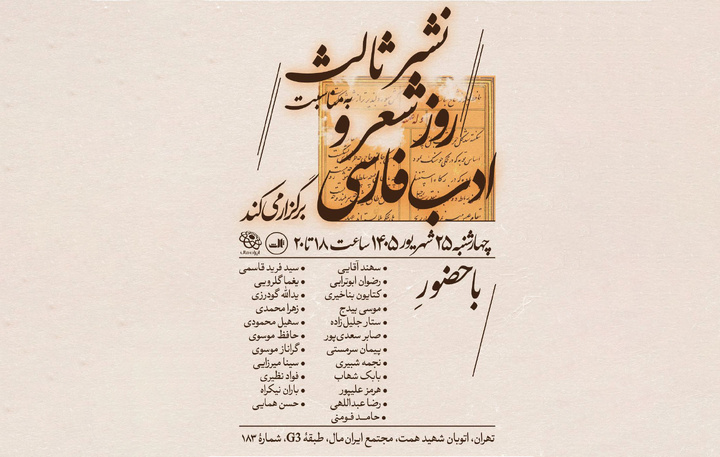 نشر ثالث
به مناسبت
روز شعر و
ادب فارسی
برگزار می‌کند
چهارشنبه ۲۵ شهریور ۱۴۰۵ ساعت ۱۸ تا ۲۰
با حضورِ
• سهند آقایی
• رضوان ابوترابی
• کتایون بناخیری
• موسی بیدج
• ستار جلیل‌زاده
• صابر سعدی‌پور
• پیمان سرمستی
• نجمه شبیری
• بابک شهاب
• هرمز علیپور
• رضا عبداللهی
• حامد فومنی
• سید فرید قاسمی
• یغما گلرویی
• یدالله گودرزی
• زهرا محمدی
• سهیل محمودی
• حافظ موسوی
• گراناز موسوی
• سینا میرزایی
• فواد نظیری
• باران نیکراه
• حسن همایی
تهران، اتوبان شهید همت، مجتمع ایران‌مال، طبقهٔ G3، شمارهٔ ۱۸۳